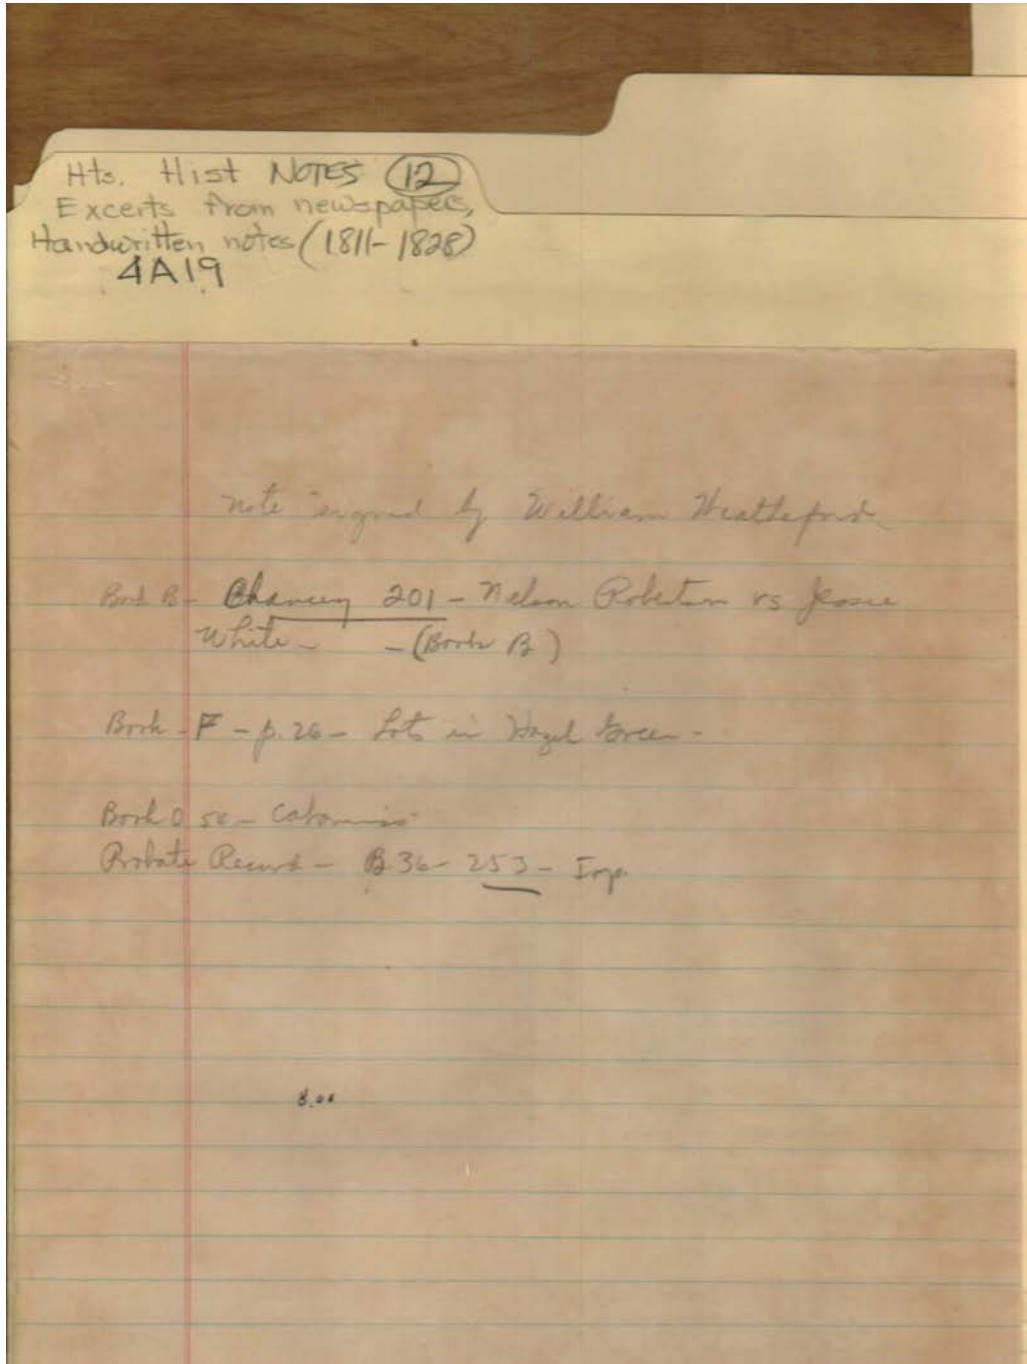 Hts. Hist NOTES (12)
Excerts from newspapers,
Handwritten notes (1811-1828)
4A19
note signed by William Weatheford
Book B - Chancery 201 - Nelson Robertson vs Jessie
White - - (Book B)
Book - F - p. 26 - Lots in Hazel Green -
Book O
Probate Record - B 36 - 253 - Imp.
8.00